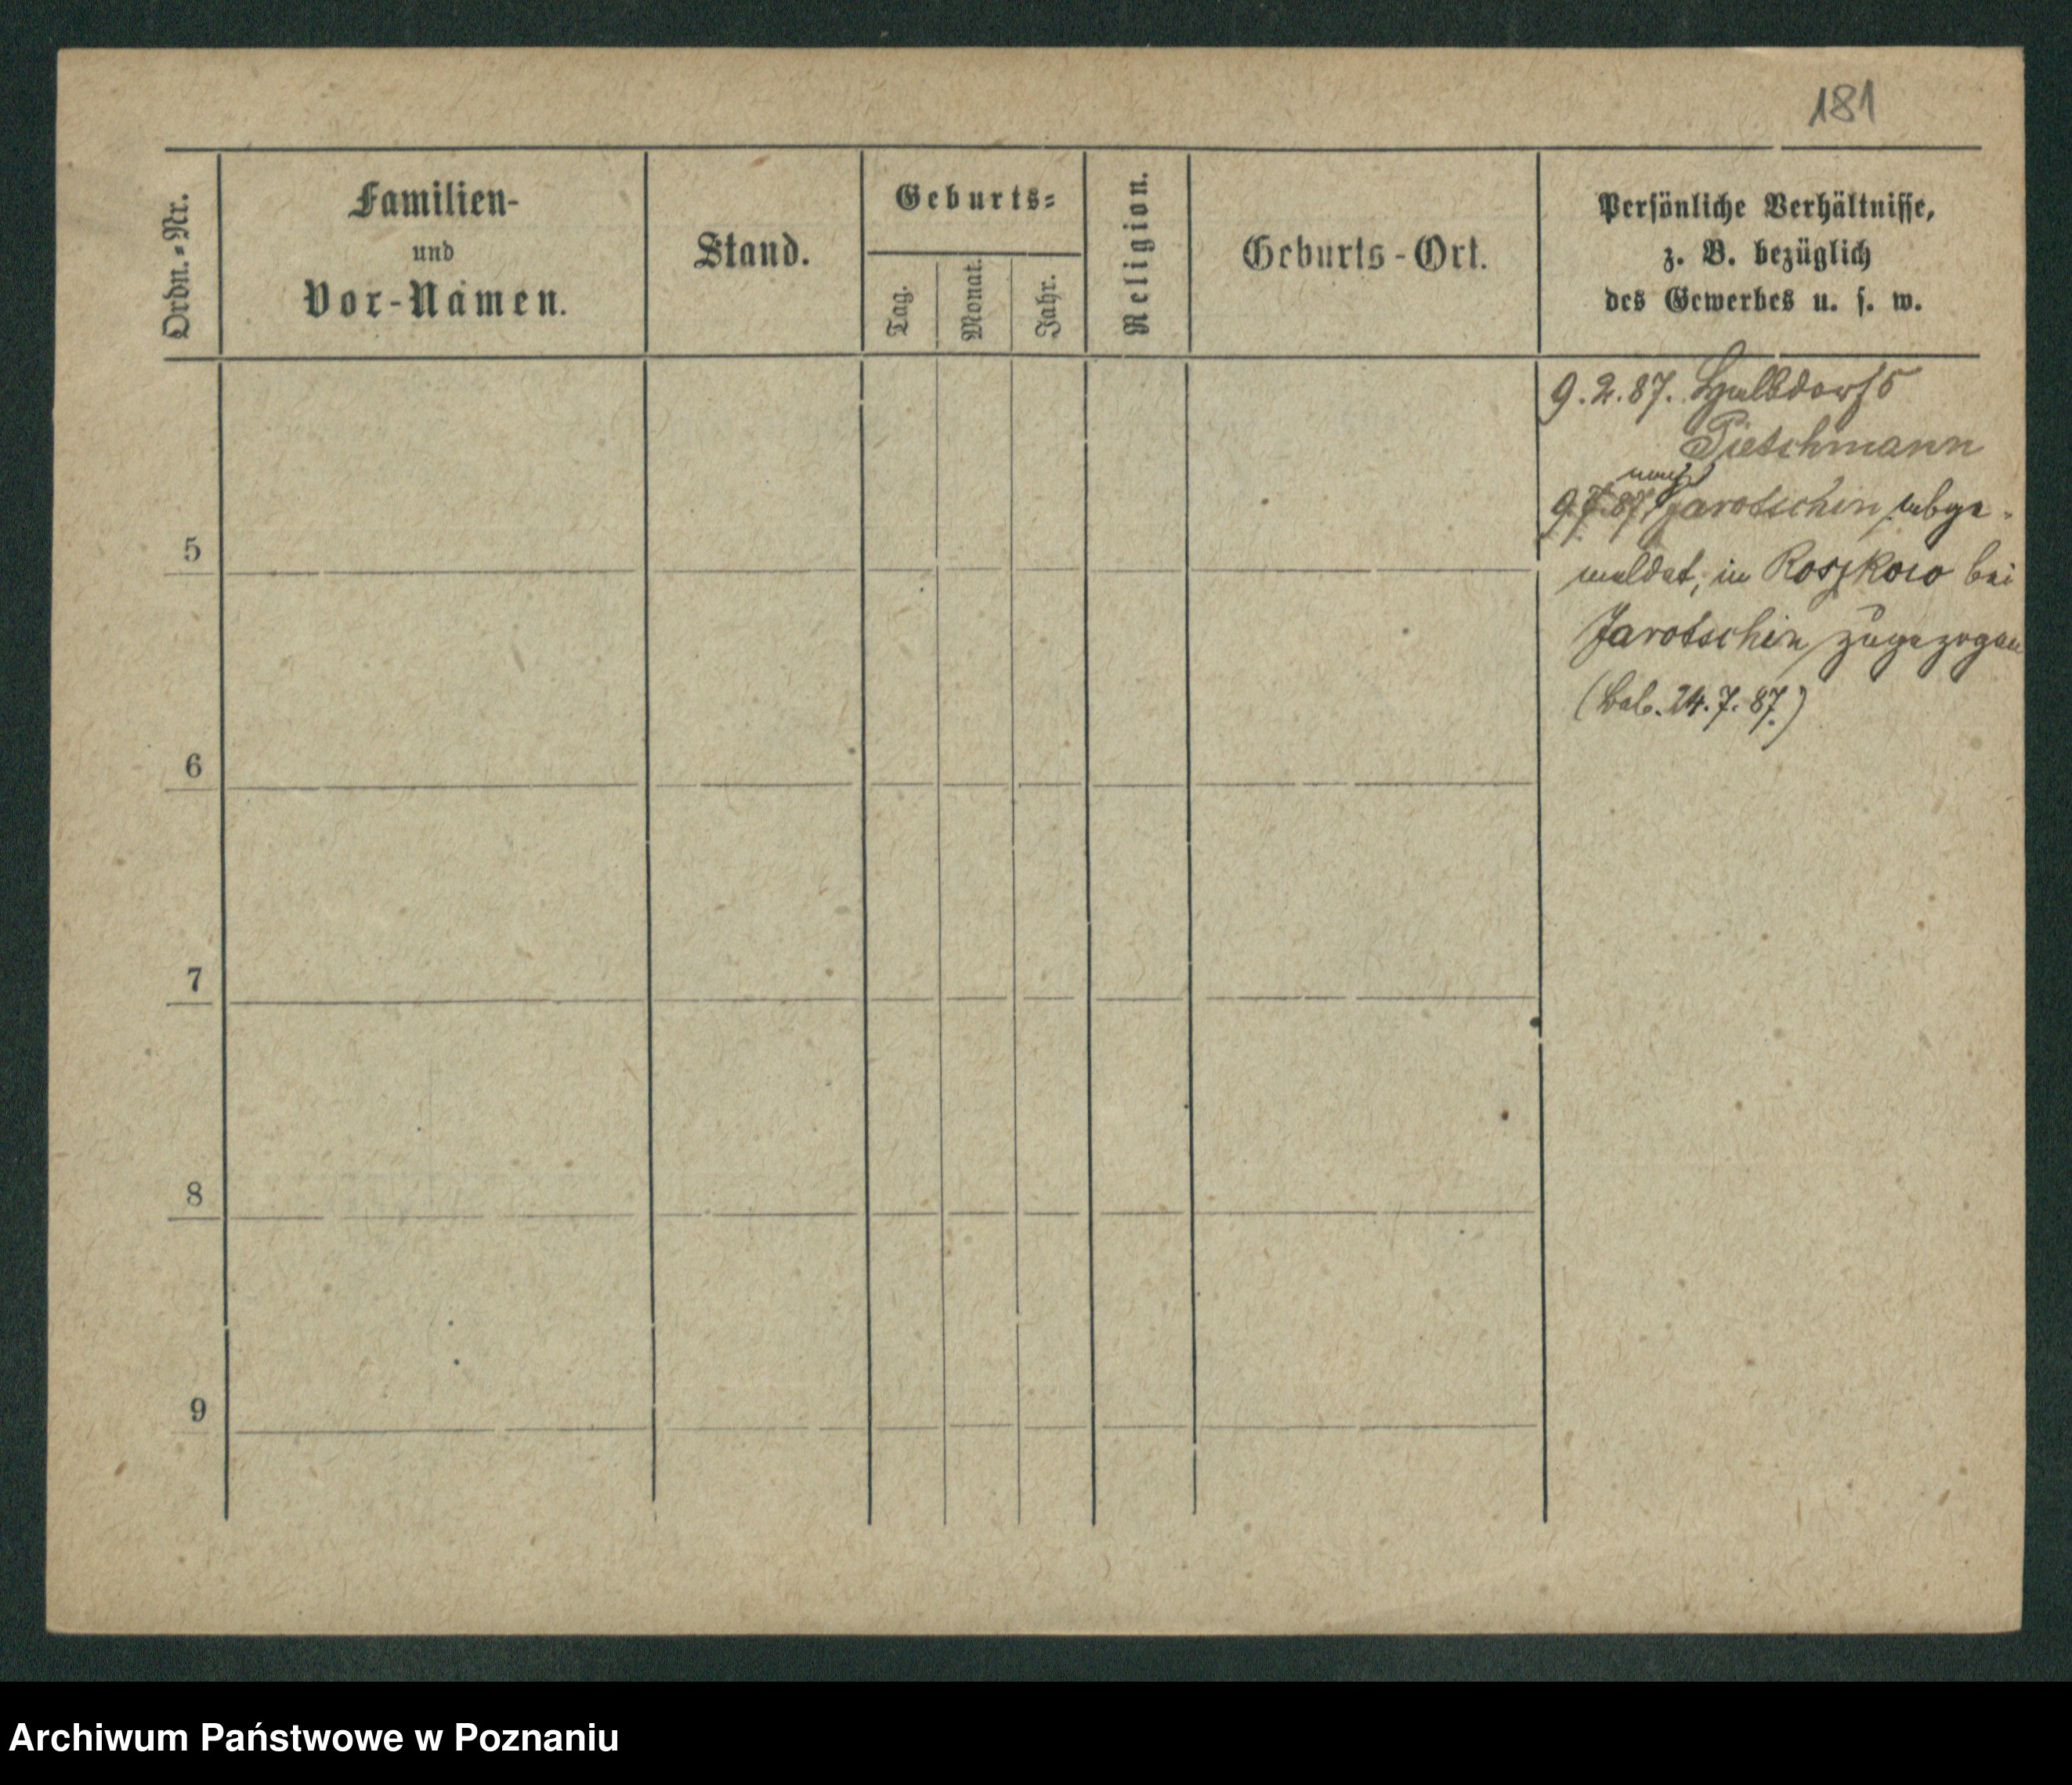 181
Ordn.-Nr.
Familien-
und
Vor-Namen.
Stand.
Geburts-
Tag.
Monat.
Jahr.
Religion.
Geburts-Ort.
Persönliche Verhältnisse,
z. B. bezüglich
des Gewerbes u. s. w.
9.2.87. Halbdorf 5
Pietschmann
nach
9.7.87. Jarotschin abge-
meldet, in Roszkowo bei
Jarotschin zugezogen
24.7.87.)
5
6
7
8
9
Archiwum Państwowe w Poznaniu